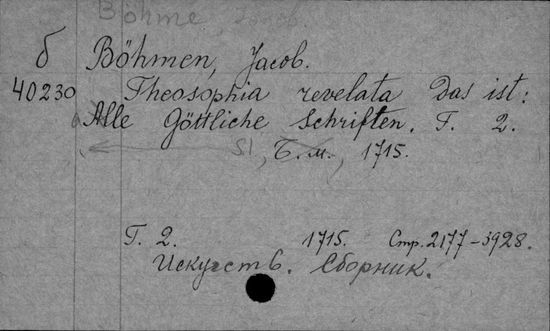 Böhme, Jacob.
б Böhmen, Jacob.
40230 Theosophia revelata Das ist:
Alle Göttliche Schriften. T. 2.
Sl, Б.м., 1715.
Т. 2. 1715. Стр. 2177-3928.
Искусств. Сборник.